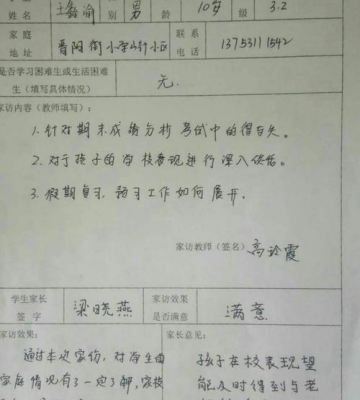 姓名 王鑫渝 性别 男 年龄 10岁 3.2
家庭地址 晋阳街小学小区 联系电话 13753111542
是否学习困难生或生活困难生(填写具体情况) 无.
家访内容(教师填写):
1. 针对期末成绩分析考试中的得与失。
2. 对于孩子的学校表现进行深入交流。
3. 假期复习、预习工作如何展开.
家访教师(签名) 高玲霞
学生家长签字 梁晓燕 家访效果是否满意 满意
家访效果: 家长意见:
通过本次家访,对学生的 孩子在校表现望
家庭情况有了一定了解,家校 能及时得到与老